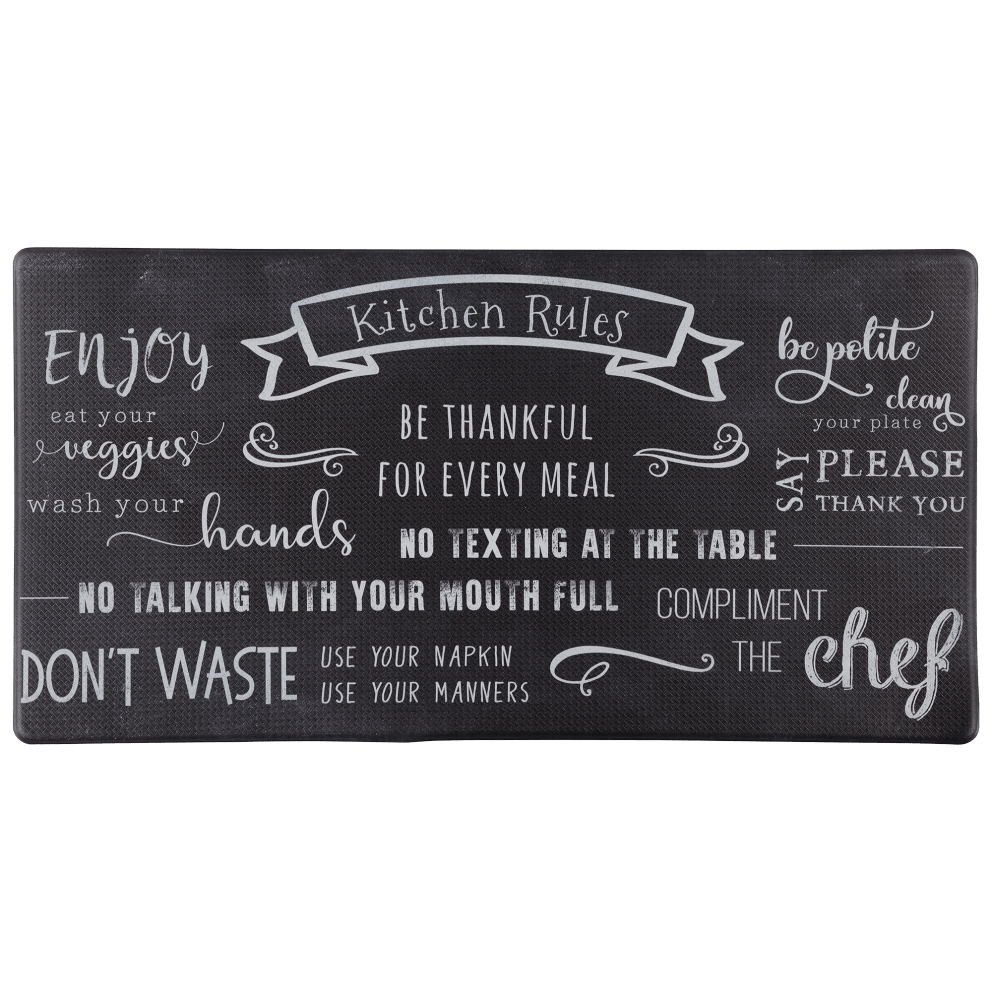 Kitchen Rules
ENJOY
eat your
veggies
wash your
hands
BE THANKFUL
FOR EVERY MEAL
be polite
clean
your plate
SAY PLEASE
THANK YOU
NO TEXTING AT THE TABLE
NO TALKING WITH YOUR MOUTH FULL
COMPLIMENT
THE chef
DON'T WASTE
USE YOUR NAPKIN
USE YOUR MANNERS